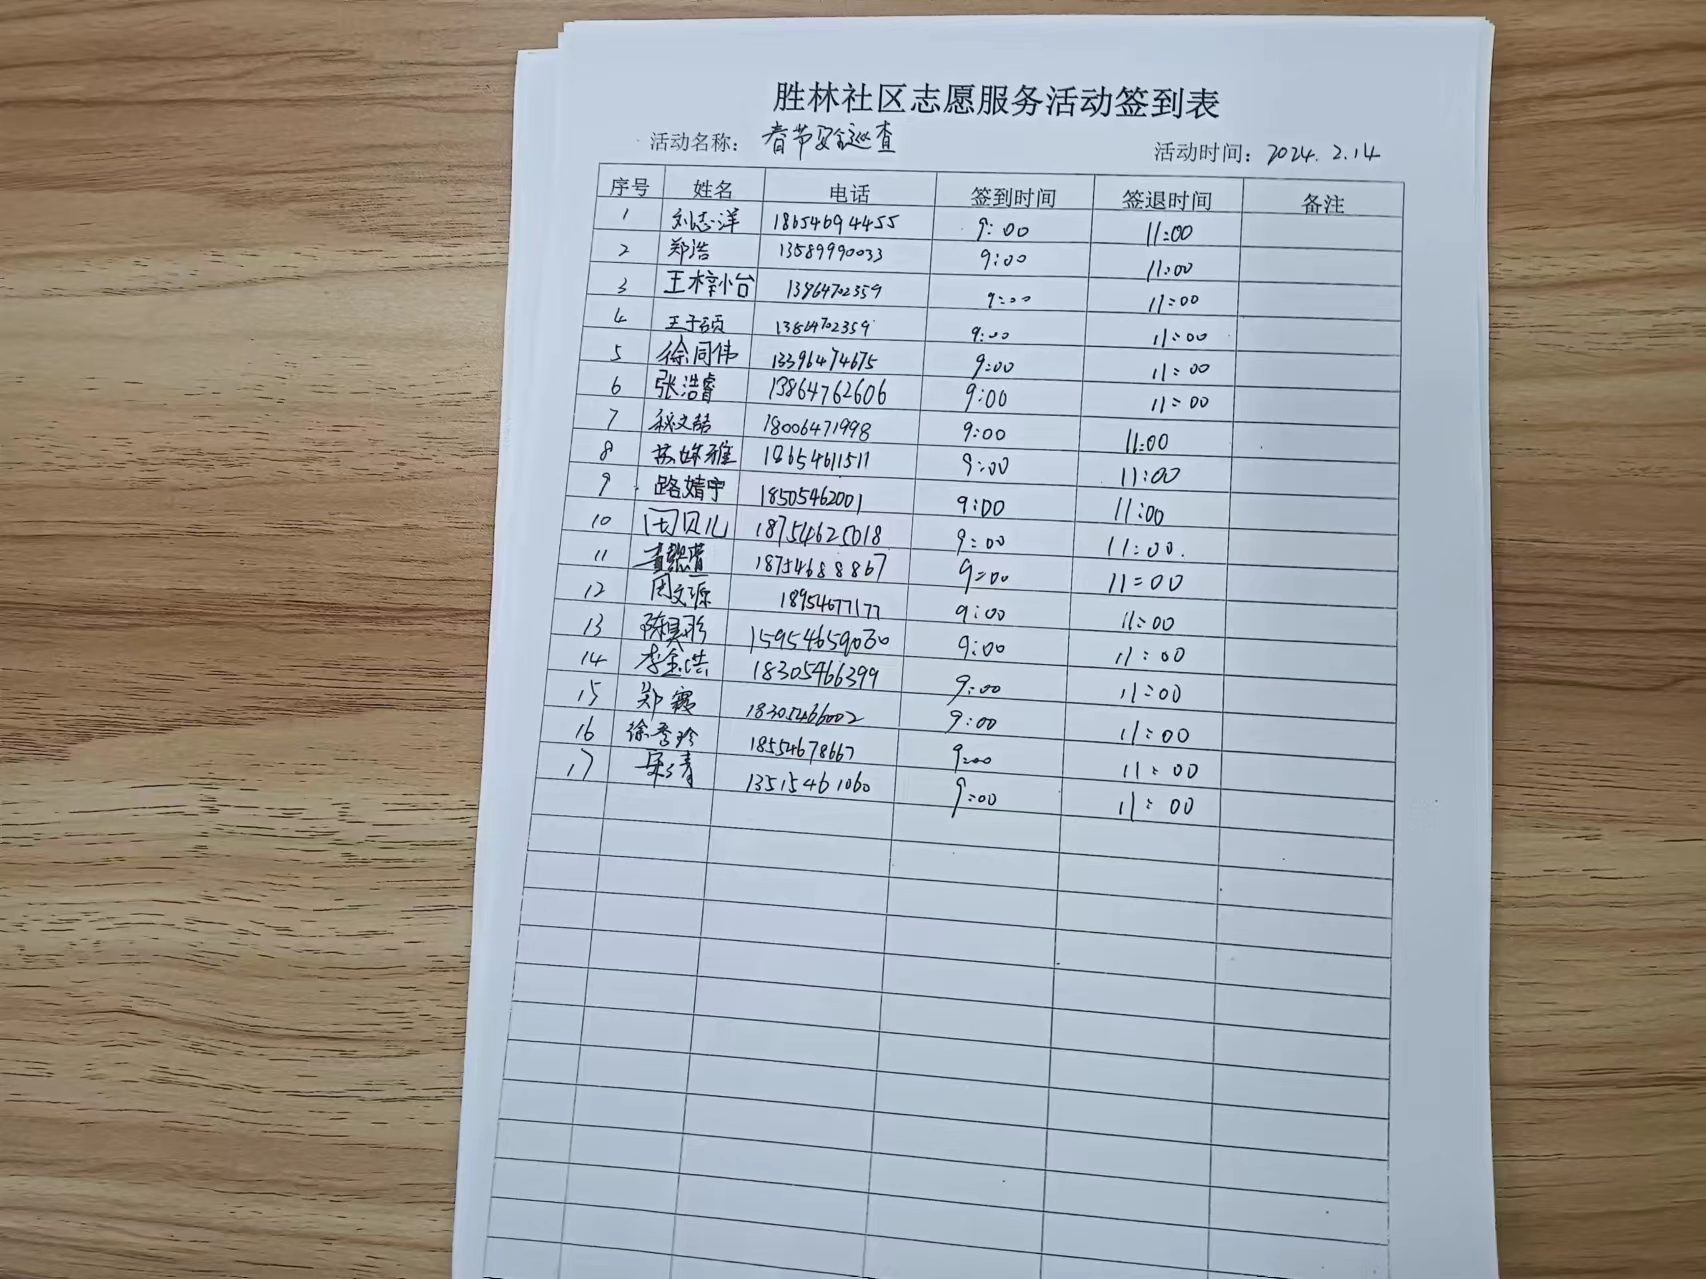 胜林社区志愿服务活动签到表
活动名称： 春节安全巡查 活动时间：2024.2.14
序号 姓名 电话 签到时间 签退时间 备注
1 刘志洋 18654694455 9:00 11:00
2 郑浩 13589990033 9:00 11:00
3 王梓 13964702359 9:00 11:00
4 王子硕 13864702359 9:00 11:00
5 徐同伟 13396474675 9:00 11:00
6 张浩睿 13864762606 9:00 11:00
7 18006471998 9:00 11:00
8 雅 18654611511 9:00 11:00
9 路婧宇 18505462001 9:00 11:00
10 田贝儿 18754625018 9:00 11:00.
11 18754688867 9:00 11:00
12 周文源 18954677177 9:00 11:00
13 陈昊彤 15954659030 9:00 11:00
14 李金洪 18305466399 9:00 11:00
15 郑霞 18305466002 9:00 11:00
16 徐秀玲 18554678667 9:00 11:00
17 13515461060 9:00 11:00